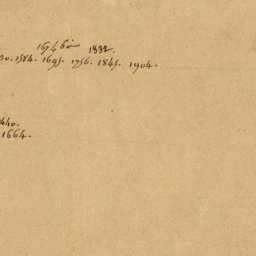 1832.
30. 1584. 1695. 1756. 1845. 1904.
440.
1664.